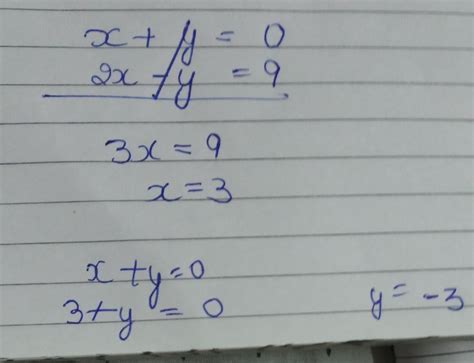 x + y = 0
2x - y = 9
3x = 9
x = 3
x + y = 0
3 + y = 0
y = -3